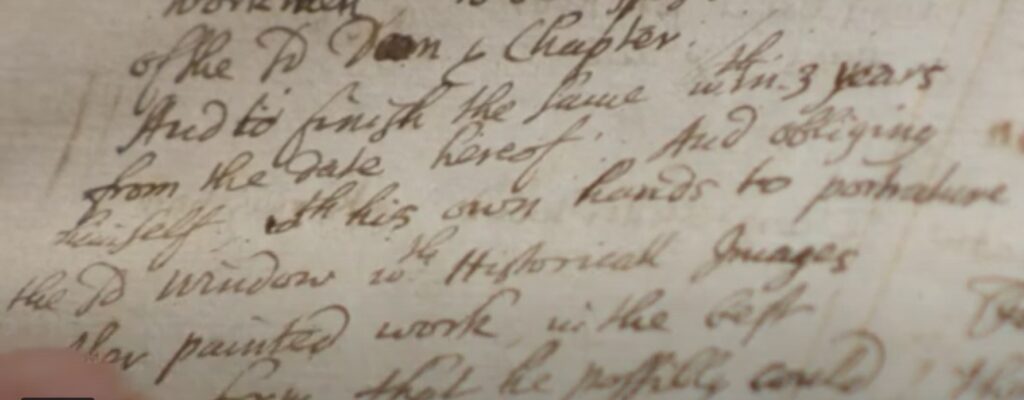 workmen
of the sd Dean & Chapter.
And to finish the same wthin 3 years
from the date hereof. And obliging
himself wth his own hands to portrature
the sd window wth Historicall Images
& other painted work in the best
form that he possibly could